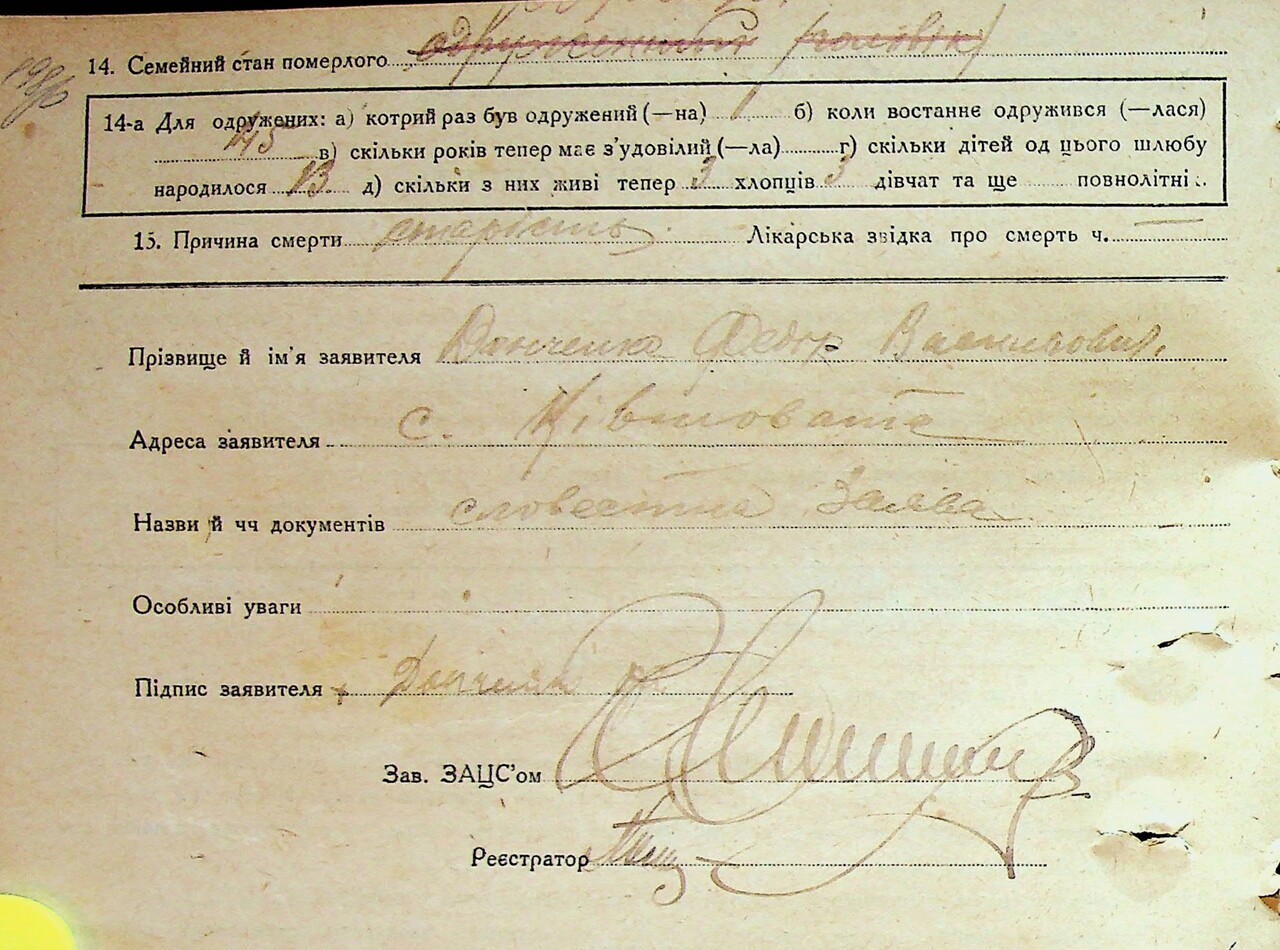 14. Семейний стан померлого одружений (чоловік)
14-а Для одружених: а) котрий раз був одружений (—на) 1 б) коли востаннє одружився (—лася)
45 в) скільки років тепер має з’удовілий (—ла) г) скільки дітей од цього шлюбу
народилося 13 д) скільки з них живі тепер 3 хлопців 3 дівчат та ще повнолітні
15. Причина смерти старість Лікарська звідка про смерть ч. —
Прізвище й ім’я заявителя Донченко Федір Васильович
Адреса заявителя с. Ківшовата
Назви й чч документів словестна заява
Особливі уваги
Підпис заявителя Донченко
Зав. ЗАЦС’ом
Реєстратор